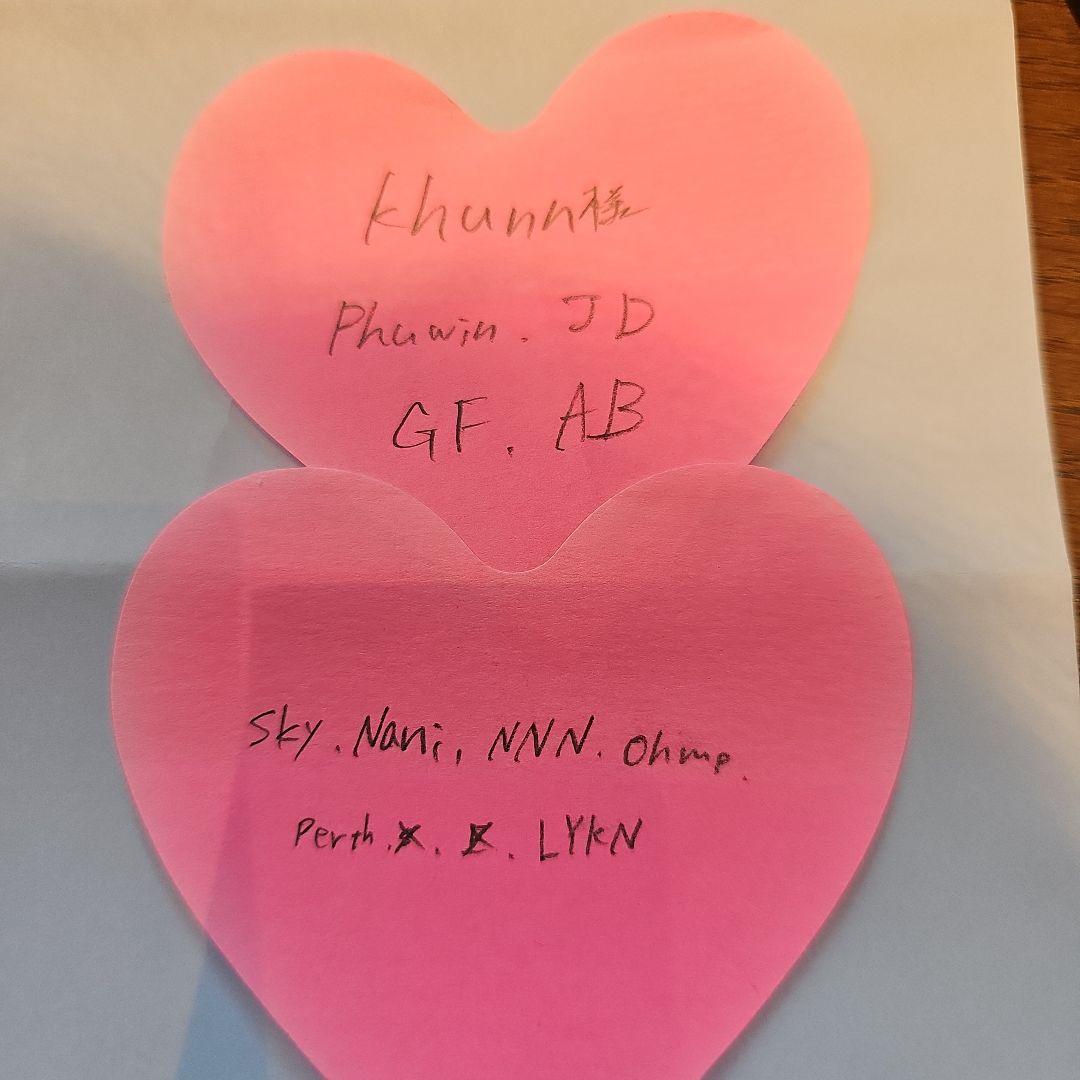 Khunn様
Phuwin. JD
GF. AB
Sky. Nani, NNN. Ohmp.
Perth. . . LYKN